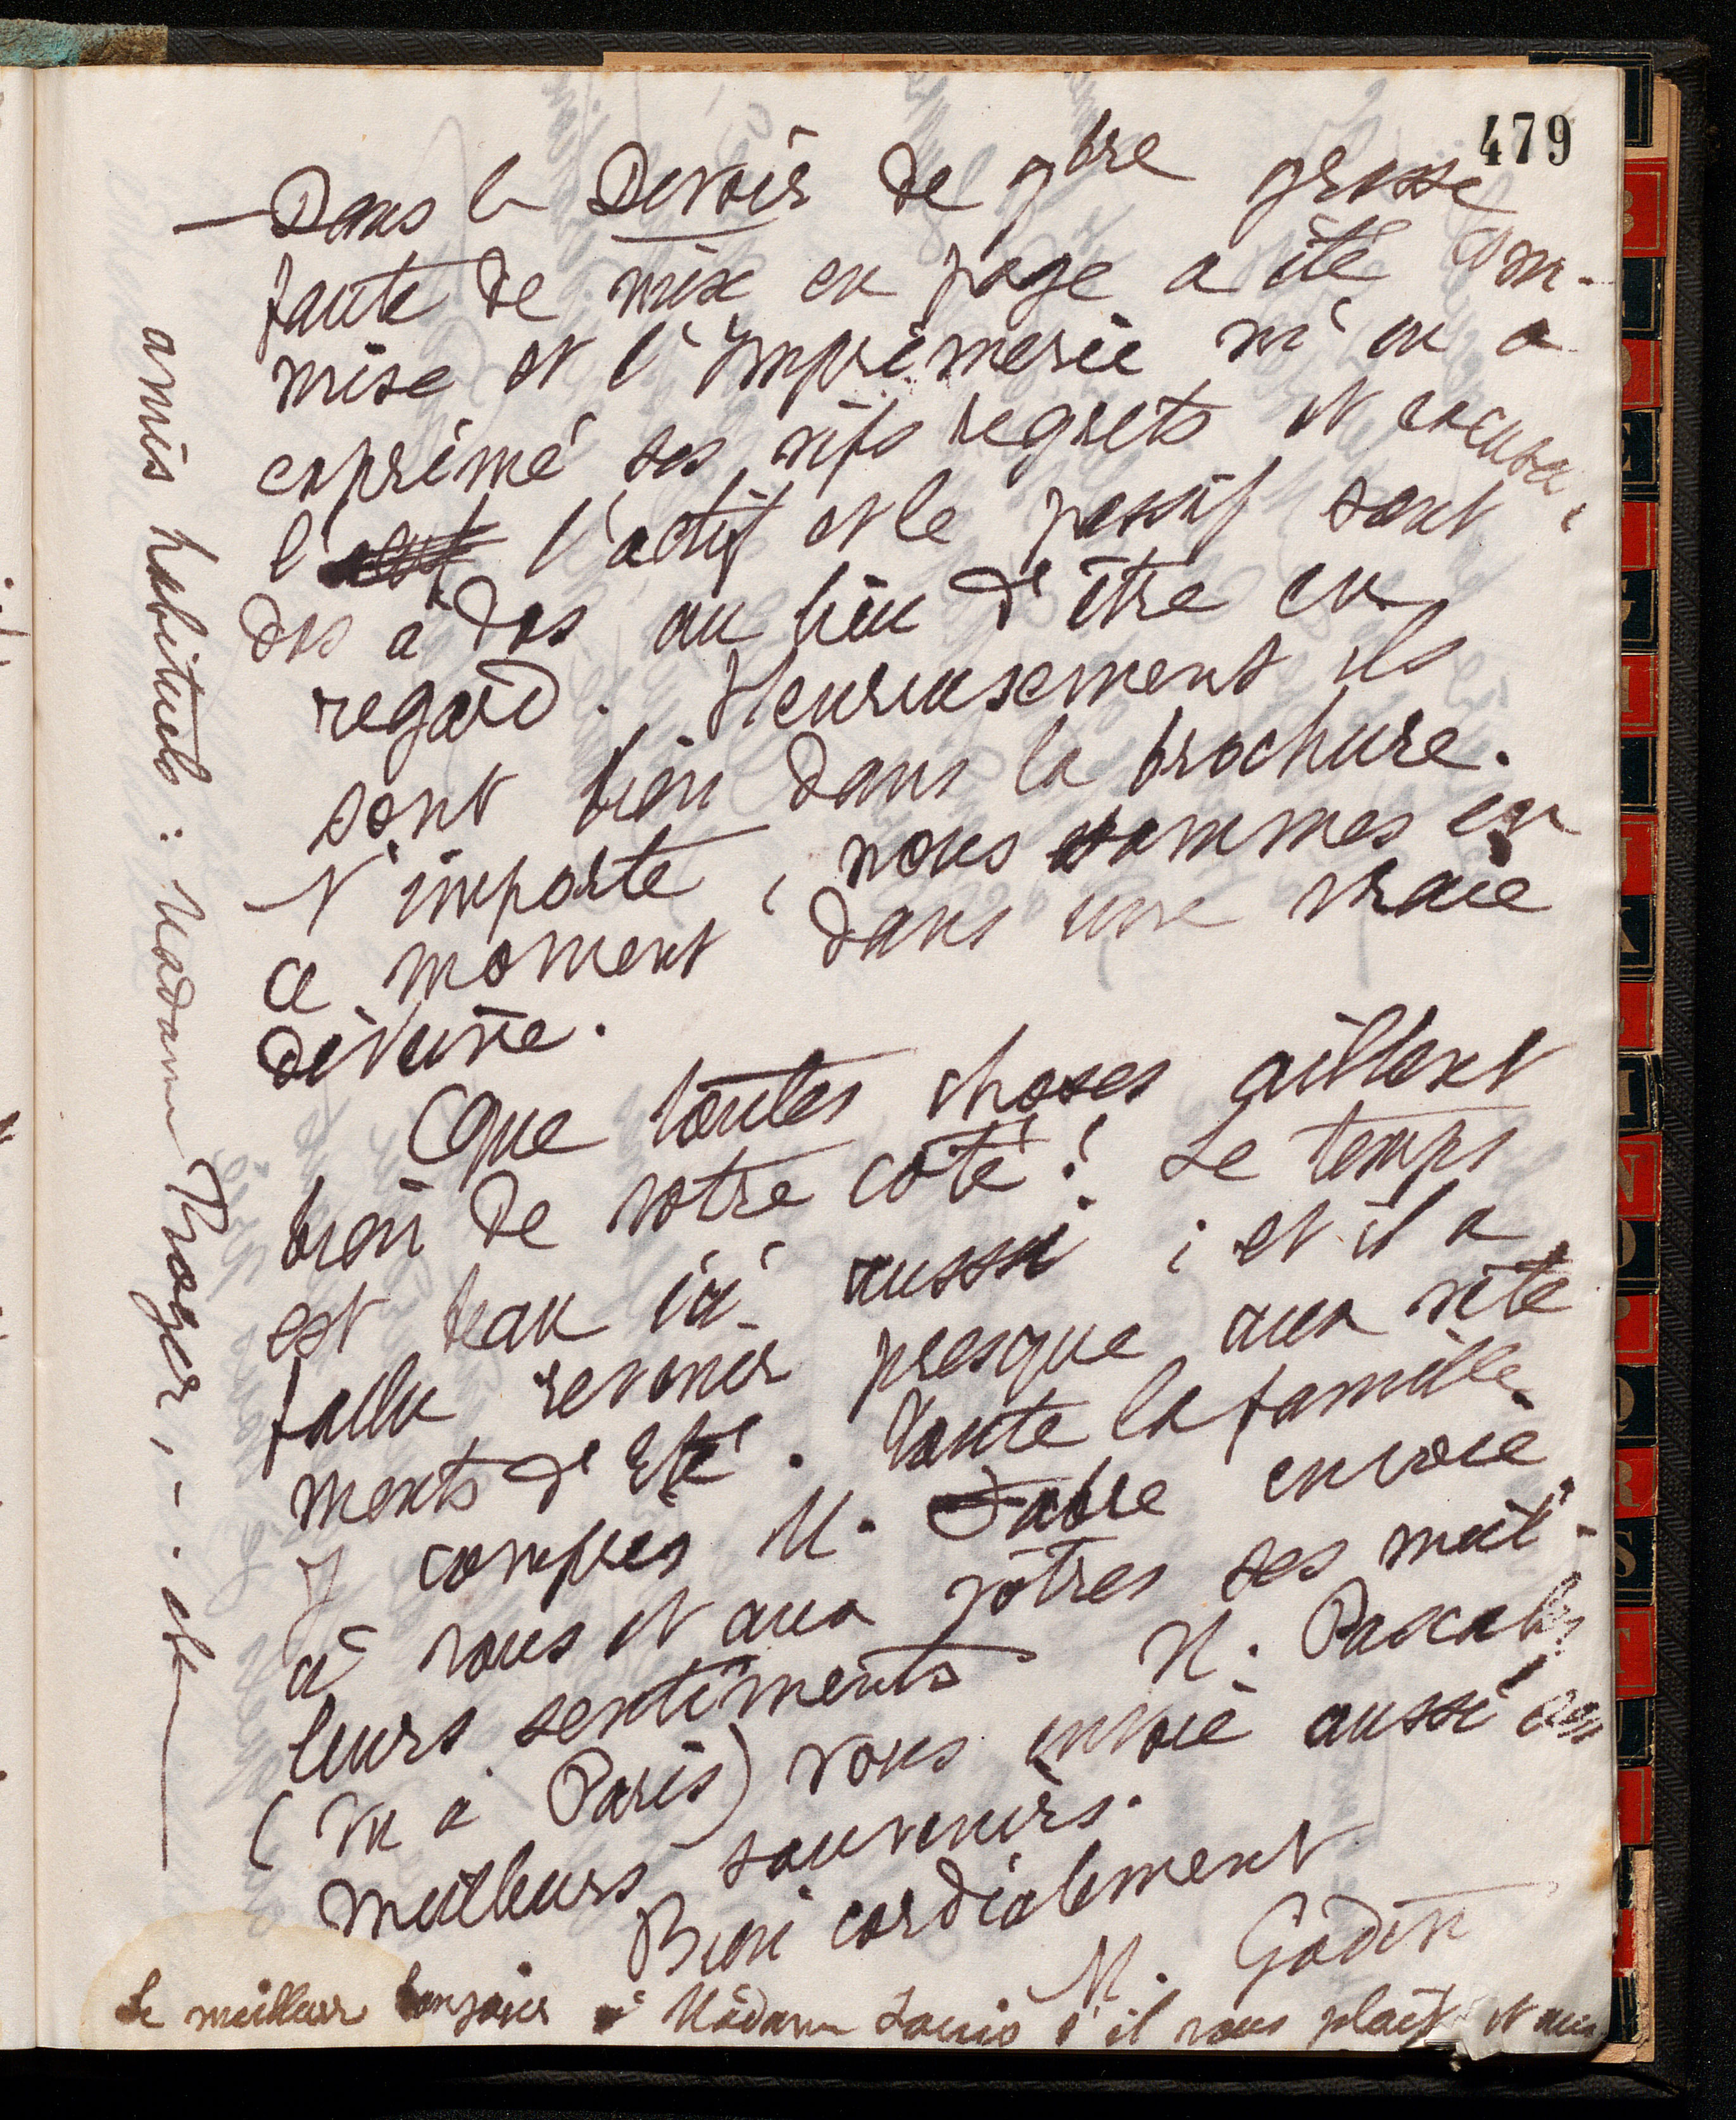 479
— Dans le Devoir de 9bre grosse
faute de mise en page a été com-
mise et l'Imprimerie m'en a
exprimé ses vifs regrets et excuses ;
l' l'actif et le passif sont
dos à dos au lieu d'être en
regard. Heureusement ils
sont bien dans la brochure.
N'importe, nous sommes en
ce moment dans une vraie
déveine.
Que toutes choses aillent
bien de votre côté ! Le temps
est beau ici aussi ; et il a
fallu revenir presque aux vête
ments d'Eté. Toute la famille
y compris M. Fabre envoie
à vous et aux vôtres ses meil-
leurs sentiments M. Pascaly
(vu à Paris) vous envoie aussi ses
meilleurs souvenirs.
Bien cordialement
M. Godin
Le meilleur bonjour à Madame Louis s'il vous plaît et aux
amis habituels : Madame Roger, -. etc